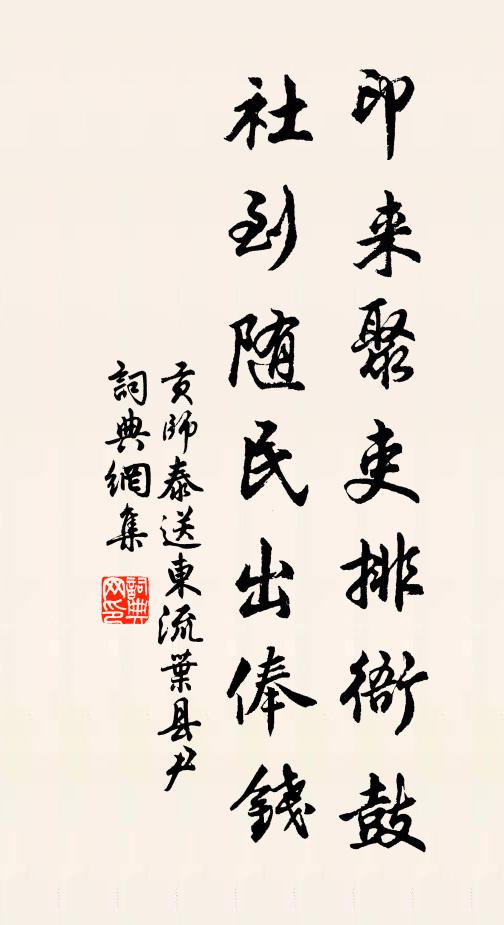 印来聚吏排衙鼓
社到随民出俸錢
貢師泰送東流葉县尹
詞典網集
詞典网印